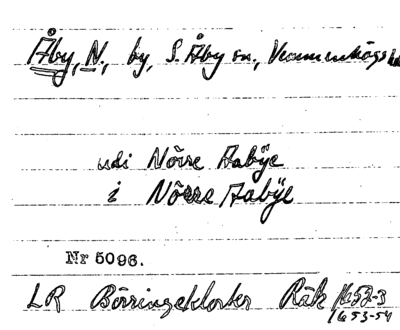 Åby, N., by, S. Åby sn., Vemmenhögs
udi Nörre Aabÿe
i Nörre Aabÿe
Nr 5096.
LR Börringekloster Räk 1652-3
1653-54